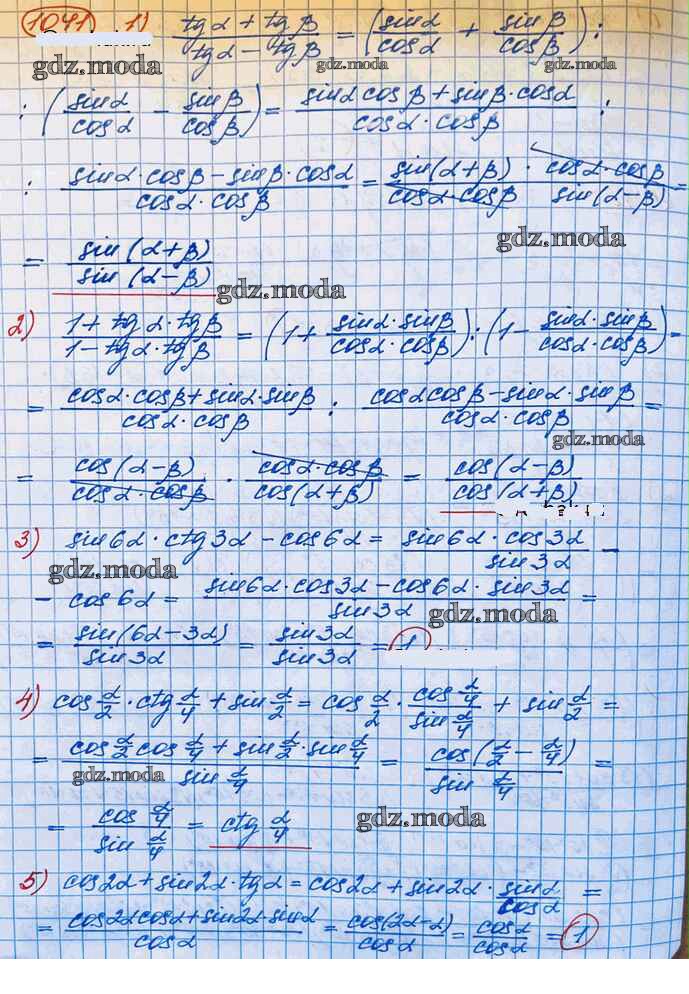 1041 1) (tgα + tgβ)/(tgα − tgβ) = (sinα/cosα + sinβ/cosβ) :
gdz.moda gdz.moda gdz.moda
: (sinα/cosα − sinβ/cosβ) = (sinα cosβ + sinβ·cosα)/(cosα·cosβ) :
: (sinα·cosβ − sinβ·cosα)/(cosα·cosβ) = sin(α+β)/(cosα·cosβ) · (cosα·cosβ)/sin(α−β) =
gdz.moda
= sin(α+β)/sin(α−β)
gdz.moda
2) (1 + tgα·tgβ)/(1 − tgα·tgβ) = (1 + (sinα·sinβ)/(cosα·cosβ)) : (1 − (sinα·sinβ)/(cosα·cosβ)) =
= (cosα·cosβ + sinα·sinβ)/(cosα·cosβ) : (cosα cosβ − sinα·sinβ)/(cosα·cosβ) =
gdz.moda
= cos(α−β)/(cosα·cosβ) · (cosα·cosβ)/cos(α+β) = cos(α−β)/cos(α+β)
3) sin6α·ctg3α − cos6α = (sin6α·cos3α)/sin3α −
gdz.moda
− cos6α = (sin6α·cos3α − cos6α·sin3α)/sin3α =
gdz.moda
= sin(6α−3α)/sin3α = sin3α/sin3α = 1
4) cos α/2 · ctg α/4 + sin α/2 = cos α/2 · (cos α/4)/(sin α/4) + sin α/2 =
= (cos α/2 cos α/4 + sin α/2 · sin α/4)/(sin α/4) = cos(α/2 − α/4)/(sin α/4) =
gdz.moda
= (cos α/4)/(sin α/4) = ctg α/4
gdz.moda
5) cos2α + sin2α·tgα = cos2α + sin2α · sinα/cosα =
= (cos2α cosα + sin2α·sinα)/cosα = cos(2α−α)/cosα = cosα/cosα = 1